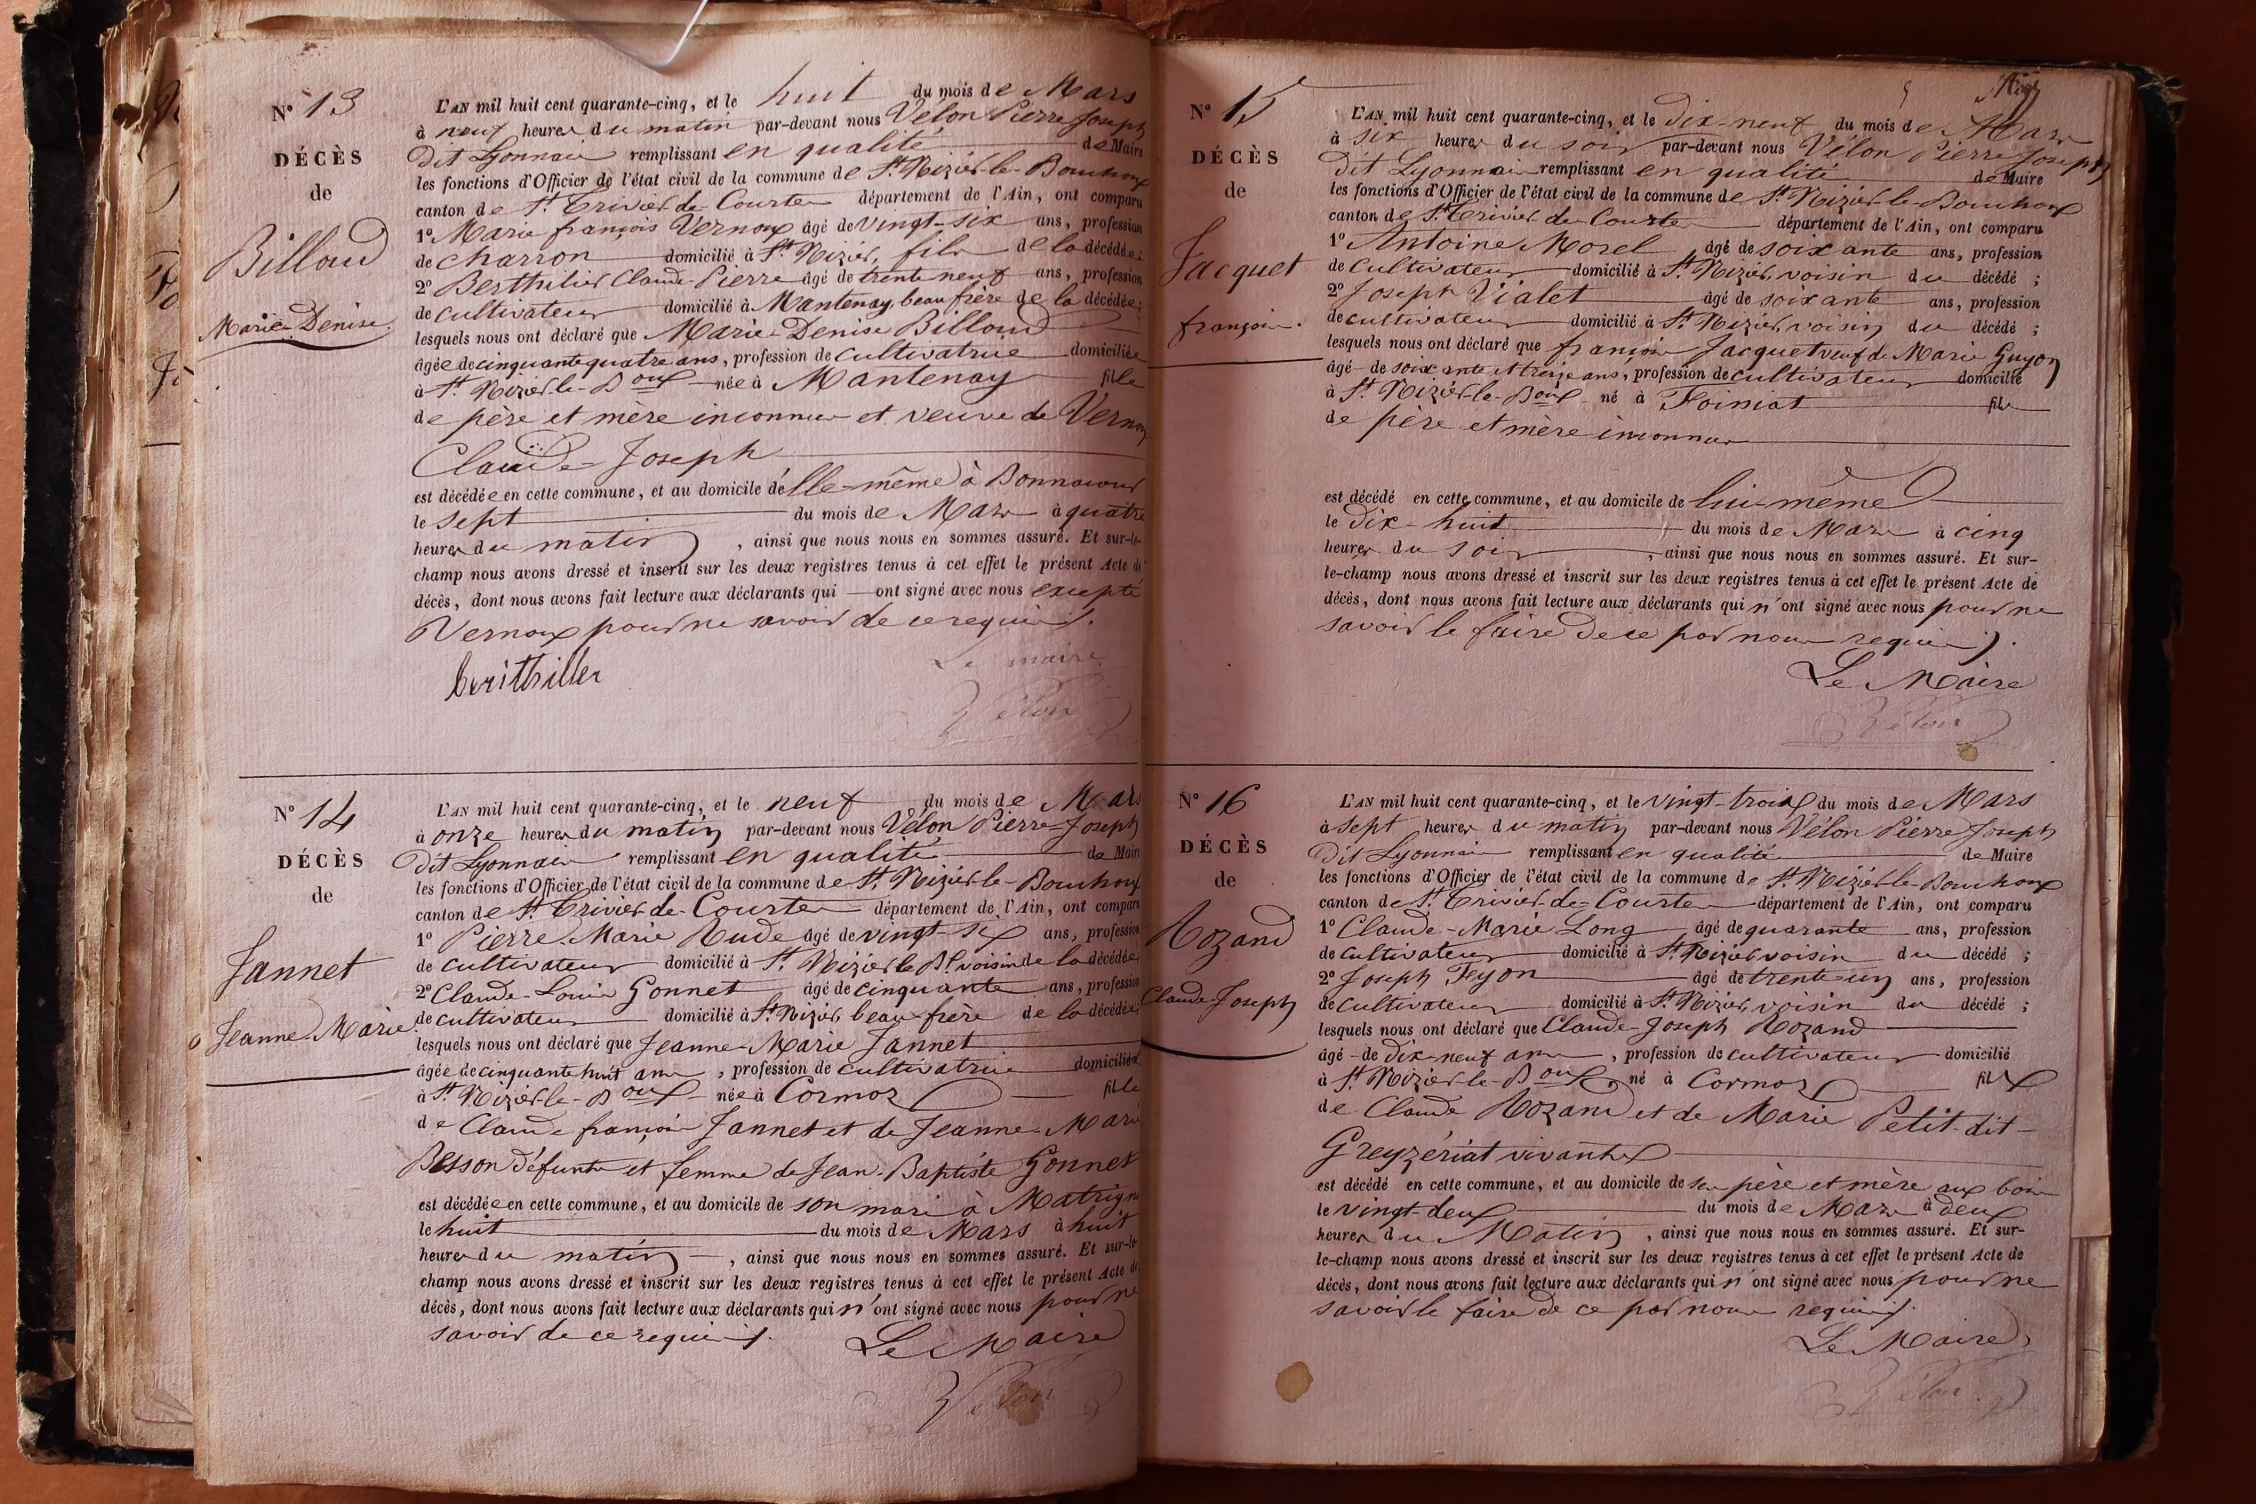 N° 13
DÉCÈS
de
Billoud
Marie-Denise.
L'AN mil huit cent quarante-cinq, et le huit du mois de Mars
à neuf heures du matin par-devant nous Vélon Pierre Joseph
dit Lyonnais remplissant en qualité de Maire
les fonctions d'Officier de l'état civil de la commune de St. Nizier-le-Bouchoux
canton de St. Trivier-de-Courtes département de l'Ain, ont comparu
1° Marie françois Vernoux âgé de vingt-six ans, profession
de charron domicilié à St. Nizier, fils de la décédée;
2° Berthilier Claude Pierre âgé de trente neuf ans, profession
de cultivateur domicilié à Mantenay, beau frère de la décédée;
lesquels nous ont déclaré que Marie-Denise Billoud
âgée de cinquante quatre ans, profession de cultivatrice domiciliée
à St. Nizier-le-Boux née à Mantenay fille
de père et mère inconnus et veuve de Vernoux
Claude-Joseph
est décédée en cette commune, et au domicile d'elle-même à Bonnacour
le sept du mois de Mars à quatre
heures du matin, ainsi que nous nous en sommes assuré. Et sur-le-
champ nous avons dressé et inscrit sur les deux registres tenus à cet effet le présent Acte de
décès, dont nous avons fait lecture aux déclarants qui — ont signé avec nous excepté
Vernoux pour ne savoir de ce requis.
berithiller
Le maire
Vélon
N° 14
DÉCÈS
de
Jannet
Jeanne-Marie.
L'AN mil huit cent quarante-cinq, et le neuf du mois de Mars
à onze heures du matin par-devant nous Vélon Pierre-Joseph
dit Lyonnais remplissant en qualité de Maire
les fonctions d'Officier de l'état civil de la commune de St. Nizier-le-Bouchoux
canton de St. Trivier-de-Courtes département de l'Ain, ont comparu
1° Pierre-Marie Rude âgé de vingt-six ans, profession
de cultivateur domicilié à St. Nizier le Bx voisin de la décédée;
2° Claude-Louis Gonnet âgé de cinquante ans, profession
de cultivateur domicilié à St. Nizier, beau-frère de la décédée;
lesquels nous ont déclaré que Jeanne-Marie Jannet
âgée de cinquante huit ans, profession de cultivatrice domiciliée
à St. Nizier-le-Boux née à Cormoz fille
de Claude françois Jannet et de Jeanne-Marie
Besson défunts et femme de Jean-Baptiste Gonnet
est décédée en cette commune, et au domicile de son mari à Matrigna
le huit du mois de Mars à huit
heures du matin, ainsi que nous nous en sommes assuré. Et sur-le-
champ nous avons dressé et inscrit sur les deux registres tenus à cet effet le présent Acte de
décès, dont nous avons fait lecture aux déclarants qui n'ont signé avec nous pour ne
savoir de ce requis.
Le Maire
Vélon
N° 15
DÉCÈS
de
Jacquet
françois.
L'AN mil huit cent quarante-cinq, et le dix-neuf du mois de Mars
à six heures du soir par-devant nous Vélon Pierre Joseph
dit Lyonnais remplissant en qualité de Maire
les fonctions d'Officier de l'état civil de la commune de St. Nizier-le-Bouchoux
canton de St. Trivier-de-Courtes département de l'Ain, ont comparu
1° Antoine Morel âgé de soixante ans, profession
de cultivateur domicilié à St. Nizier, voisin du décédé;
2° Joseph Vialet âgé de soixante ans, profession
de cultivateur domicilié à St. Nizier, voisin du décédé;
lesquels nous ont déclaré que françois Jacquet veuf de Marie Guyon
âgé de soixante et treize ans, profession de cultivateur domicilié
à St. Nizier-le-Boux né à Foimat fils
de père et mère inconnus
est décédé en cette commune, et au domicile de lui-même
le dix-huit du mois de Mars à cinq
heures du soir, ainsi que nous nous en sommes assuré. Et sur-
le-champ nous avons dressé et inscrit sur les deux registres tenus à cet effet le présent Acte de
décès, dont nous avons fait lecture aux déclarants qui n'ont signé avec nous pour ne
savoir le faire de ce par nous requis.
Le Maire
Vélon
N° 16
DÉCÈS
de
Rozand
Claude-Joseph
L'AN mil huit cent quarante-cinq, et le vingt-trois du mois de Mars
à sept heures du matin par-devant nous Vélon Pierre Joseph
dit Lyonnais remplissant en qualité de Maire
les fonctions d'Officier de l'état civil de la commune de St. Nizier-le-Bouchoux
canton de St. Trivier-de-Courtes département de l'Ain, ont comparu
1° Claude-Marie Long âgé de quarante ans, profession
de cultivateur domicilié à St. Nizier voisin du décédé;
2° Joseph Feyon âgé de trente un ans, profession
de cultivateur domicilié à St. Nizier, voisin du décédé;
lesquels nous ont déclaré que Claude-Joseph Rozand
âgé de dix-neuf ans, profession de cultivateur domicilié
à St. Nizier-le-Boux, né à Cormoz fils
de Claude Rozand et de Marie Petit-dit-
Greyzériat vivants
est décédé en cette commune, et au domicile de ses père et mère aux bois
le vingt-deux du mois de Mars à deux
heures du Matin, ainsi que nous nous en sommes assuré. Et sur-
le-champ nous avons dressé et inscrit sur les deux registres tenus à cet effet le présent Acte de
décès, dont nous avons fait lecture aux déclarants qui n'ont signé avec nous pour ne
savoir le faire de ce par nous requis.
Le Maire
Vélon